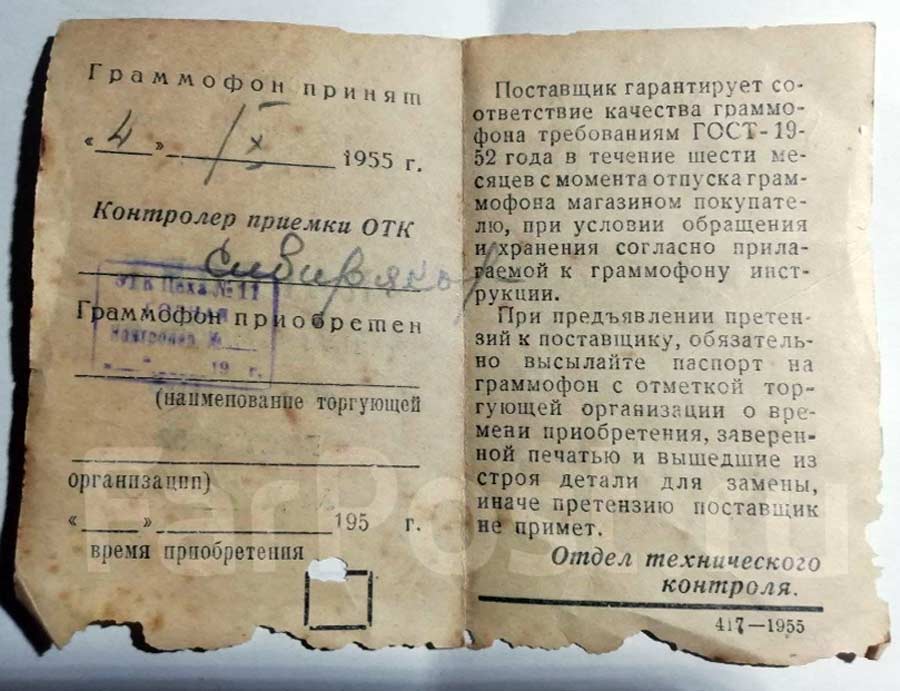 Граммофон принят
«4» IX 1955 г.
Контролер приемки ОТК
Сибиряков
ОТК Цеха № 11
Граммофон приобретен
Контролер №
« » 19 г.
(наименование торгующей
организации)
« » 195 г.
время приобретения
Поставщик гарантирует со-
ответствие качества граммо-
фона требованиям ГОСТ-19-
52 года в течение шести ме-
сяцев с момента отпуска грам-
мофона магазином покупате-
лю, при условии обращения
и хранения согласно прила-
гаемой к граммофону инст-
рукции.
При предъявлении претен-
зий к поставщику, обязатель-
но высылайте паспорт на
граммофон с отметкой тор-
гующей организации о вре-
мени приобретения, заверен-
ной печатью и вышедшие из
строя детали для замены,
иначе претензию поставщик
не примет.
Отдел технического
контроля.
417—1955
FarPost.ru